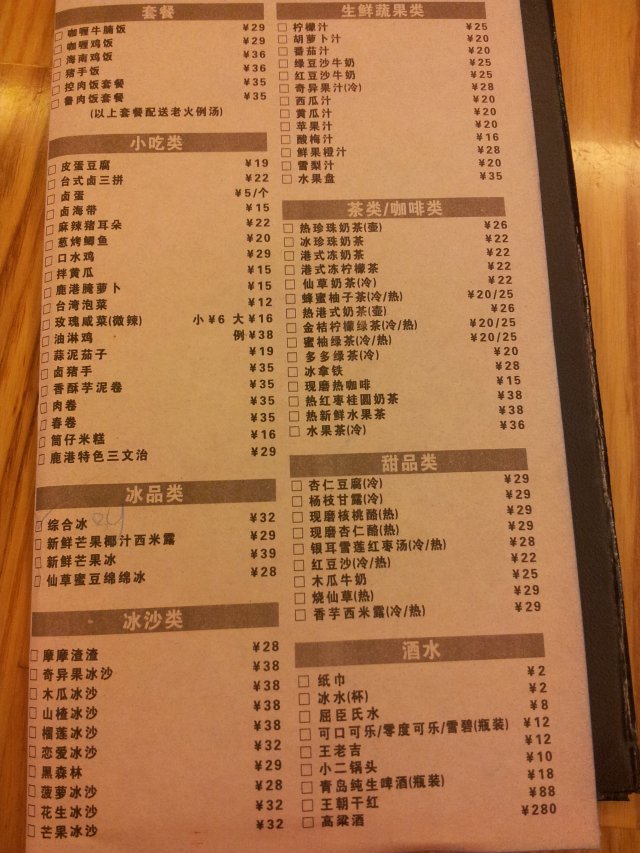 套餐
咖喱牛腩饭 ¥29
咖喱鸡饭 ¥29
海南鸡饭 ¥36
猪手饭 ¥36
控肉饭套餐 ¥35
鲁肉饭套餐 ¥35
(以上套餐配送老火例汤)
小吃类
皮蛋豆腐 ¥19
台式卤三拼 ¥22
卤蛋 ¥5/个
卤海带 ¥15
麻辣猪耳朵 ¥22
葱烤鲫鱼 ¥20
口水鸡 ¥29
拌黄瓜 ¥15
鹿港腌萝卜 ¥15
台湾泡菜 ¥12
玫瑰咸菜(微辣) 小¥6 大¥16
油淋鸡 例¥38
蒜泥茄子 ¥19
卤猪手 ¥35
香酥芋泥卷 ¥35
肉卷 ¥35
春卷 ¥35
筒仔米糕 ¥16
鹿港特色三文治 ¥29
冰品类
综合冰 ¥32
新鲜芒果椰汁西米露 ¥29
新鲜芒果冰 ¥39
仙草蜜豆绵绵冰 ¥28
冰沙类
摩摩渣渣 ¥28
奇异果冰沙 ¥38
木瓜冰沙 ¥38
山楂冰沙 ¥38
榴莲冰沙 ¥38
恋爱冰沙 ¥32
黑森林 ¥29
菠萝冰沙 ¥28
花生冰沙 ¥32
芒果冰沙 ¥32
生鲜蔬果类
柠檬汁 ¥25
胡萝卜汁 ¥20
番茄汁 ¥20
绿豆沙牛奶 ¥25
红豆沙牛奶 ¥25
奇异果汁(冷) ¥28
西瓜汁 ¥20
黄瓜汁 ¥20
苹果汁 ¥20
酸梅汁 ¥16
鲜果橙汁 ¥28
雪梨汁 ¥20
水果盘 ¥35
茶类/咖啡类
热珍珠奶茶(壶) ¥26
冰珍珠奶茶 ¥22
港式冻奶茶 ¥22
港式冻柠檬茶 ¥22
仙草奶茶(冷) ¥22
蜂蜜柚子茶(冷/热) ¥20/25
热港式奶茶(壶) ¥26
金桔柠檬绿茶(冷/热) ¥20/25
蜜柚绿茶(冷/热) ¥20/25
多多绿茶(冷) ¥20
冰拿铁 ¥28
现磨热咖啡 ¥15
热红枣桂圆奶茶 ¥38
热新鲜水果茶 ¥38
水果茶(冷) ¥36
甜品类
杏仁豆腐(冷) ¥29
杨枝甘露(冷) ¥29
现磨核桃酪(热) ¥29
现磨杏仁酪(热) ¥29
银耳雪莲红枣汤(冷/热) ¥28
红豆沙(冷/热) ¥22
木瓜牛奶 ¥25
烧仙草(热) ¥29
香芋西米露(冷/热) ¥29
酒水
纸巾 ¥2
冰水(杯) ¥2
屈臣氏水 ¥8
可口可乐/零度可乐/雪碧(瓶装) ¥12
王老吉 ¥12
小二锅头 ¥10
青岛纯生啤酒(瓶装) ¥18
王朝干红 ¥88
高粱酒 ¥280